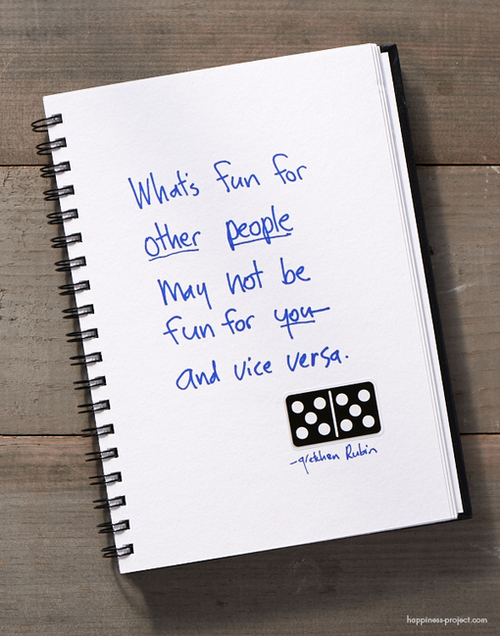 What's fun for
other people
may not be
fun for you—
and vice versa.
—gretchen Rubin
happiness-project.com